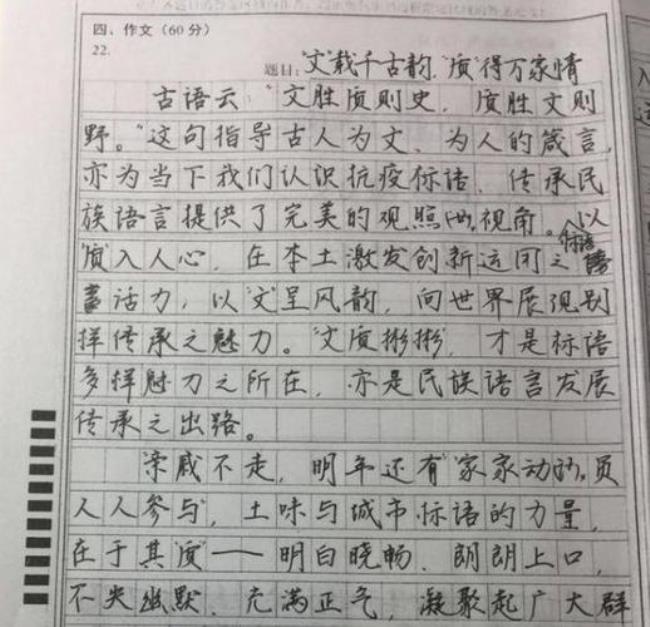 四、作文(60分)
22.
题目:"文"载千古韵,"质"得万家情
古语云:"文胜质则史,质胜文则
野。"这句指导古人为文、为人的箴言,
亦为当下我们认识抗疫标语、传承民
族语言提供了完美的观照视角。以
"质"入人心,在本土激发创新运用之标语
活力,以"文"呈风韵,向世界展现别
样传承之魅力。"文质彬彬",才是标语
多样魅力之所在,亦是民族语言发展
传承之出路。
"亲戚不走,明年还有""家家动员,
人人参与",土味与城市标语的力量,
在于其"质"——明白晓畅、朗朗上口,
不失幽默、充满正气,凝聚起广大群